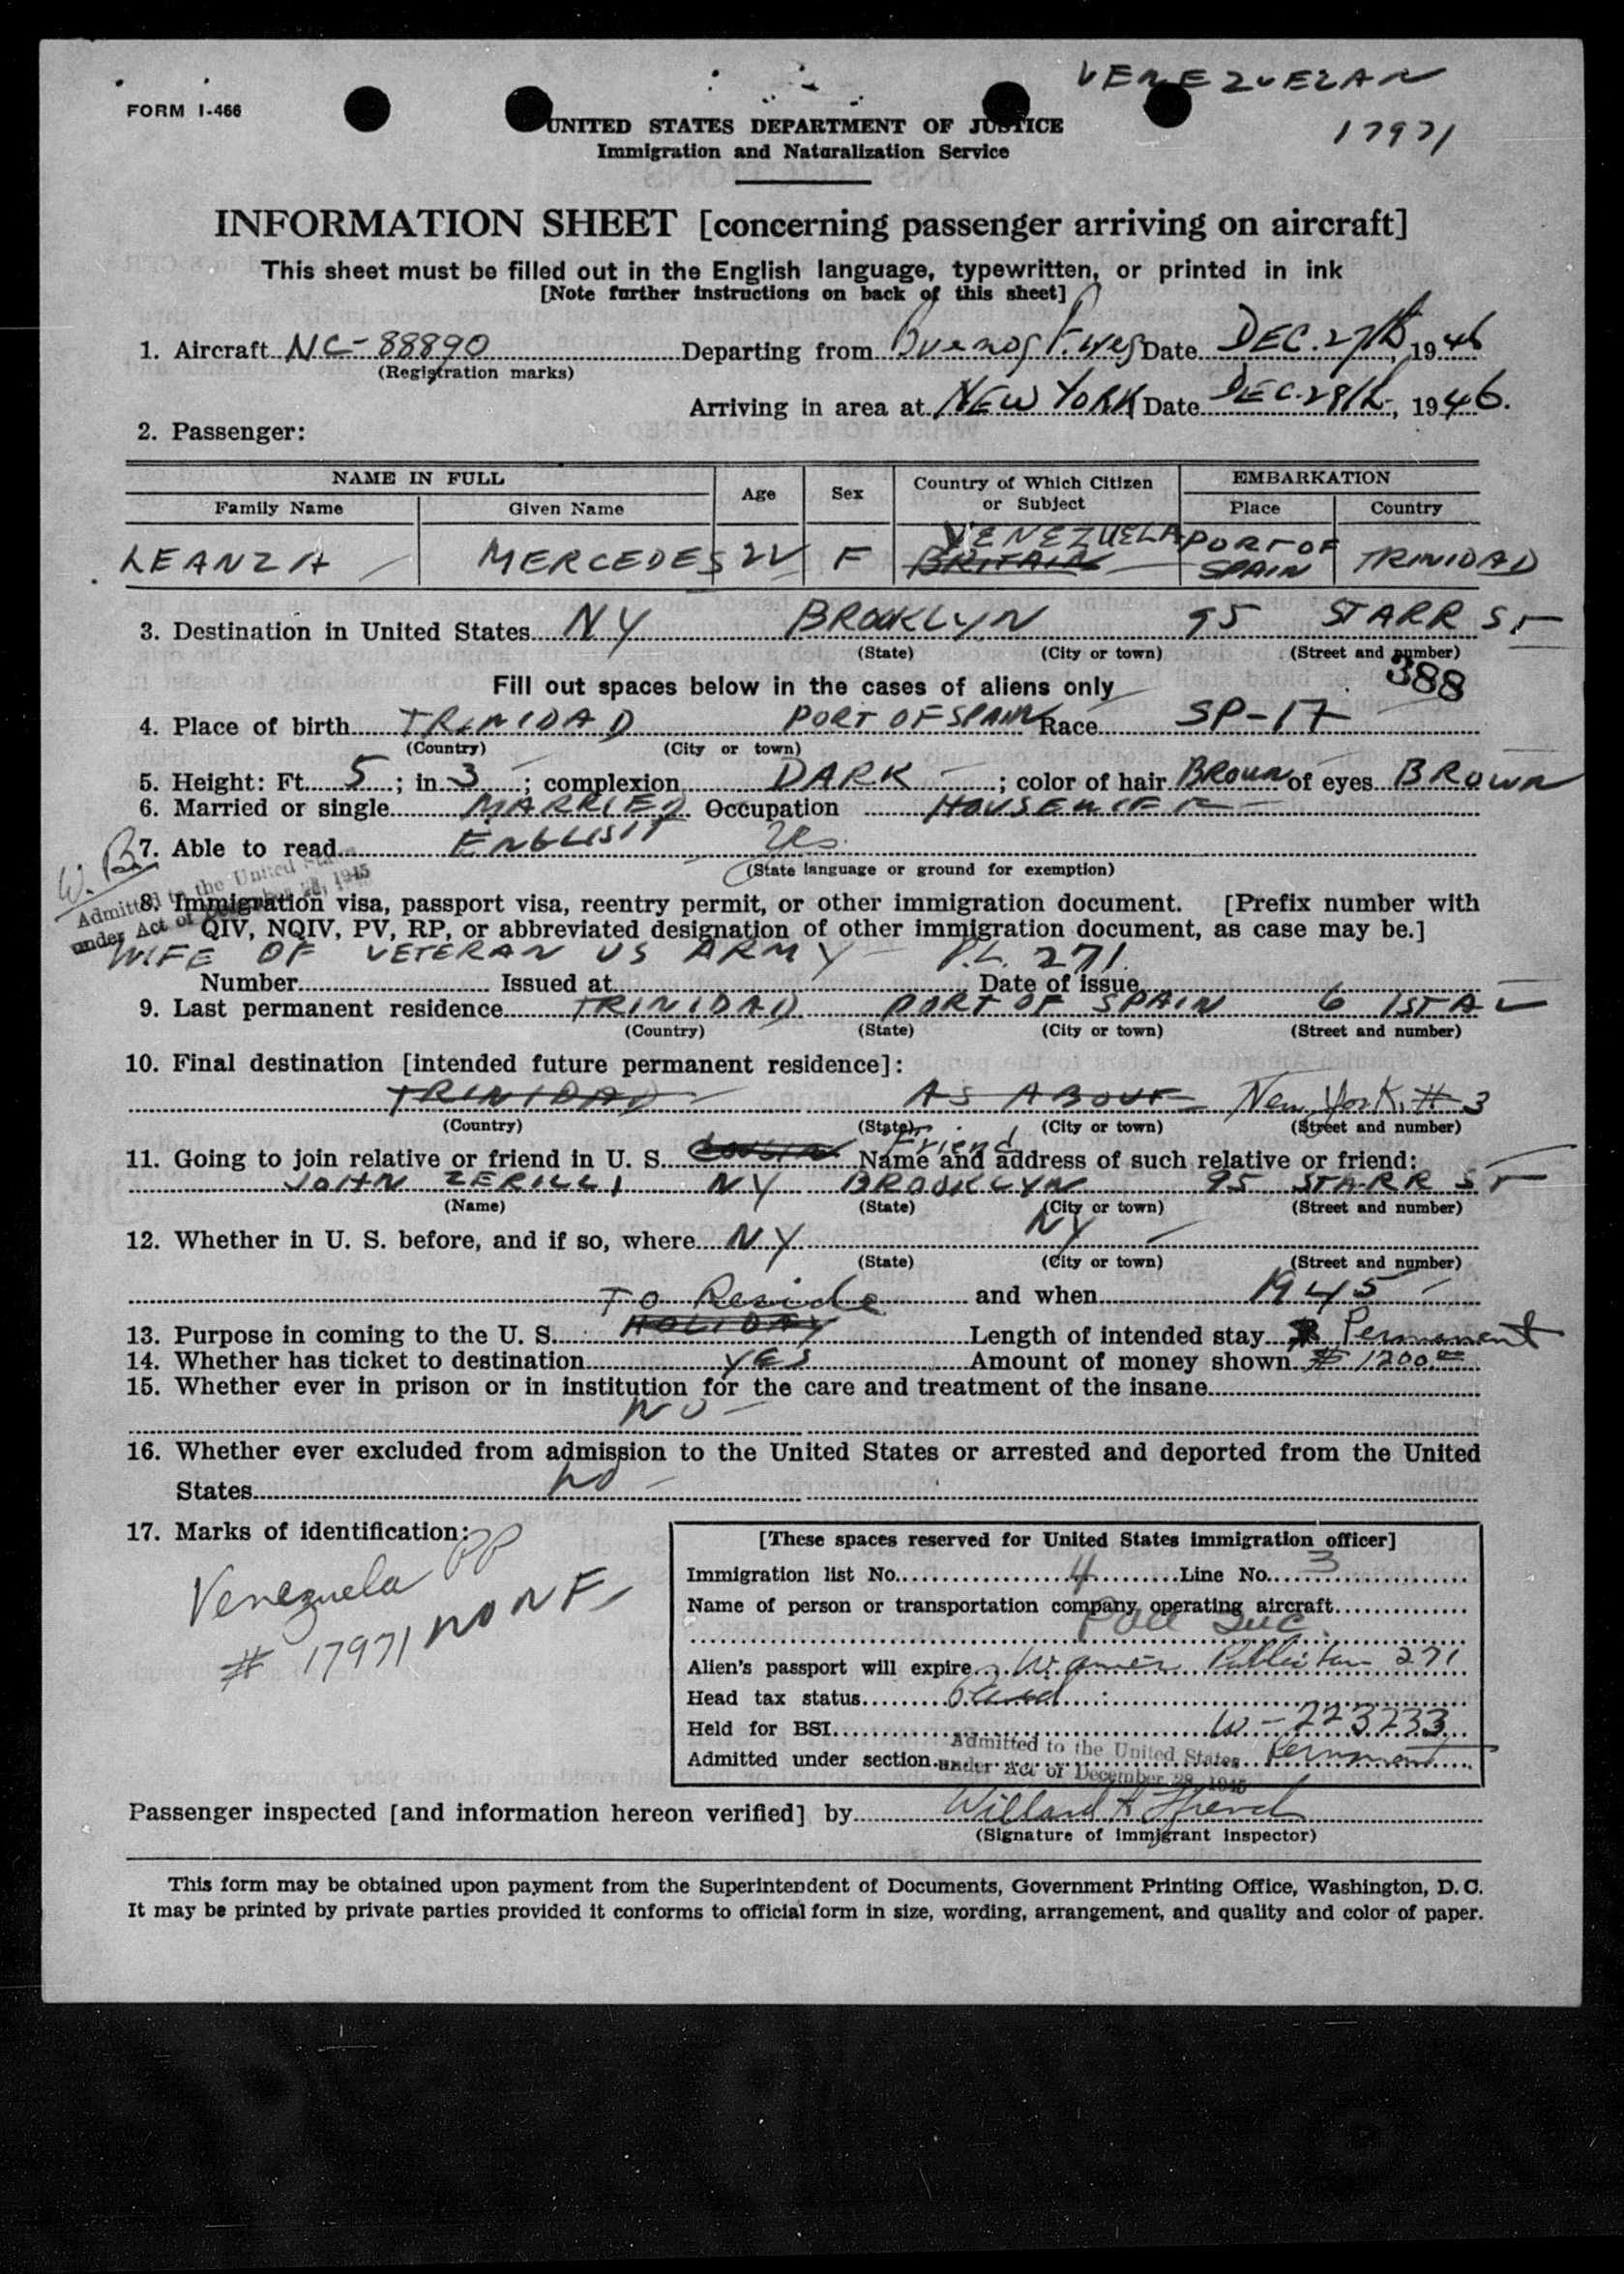 VENEZUELAN
FORM I-466
UNITED STATES DEPARTMENT OF JUSTICE
17971
Immigration and Naturalization Service
INFORMATION SHEET [concerning passenger arriving on aircraft]
This sheet must be filled out in the English language, typewritten, or printed in ink
[Note further instructions on back of this sheet]
1. Aircraft NC-88890 Departing from Buenos Aires Date DEC. 27th, 1946
(Registration marks)
Arriving in area at NEW YORK Date DEC. 28th, 1946.
2. Passenger:
NAME IN FULL Age Sex Country of Which Citizen or Subject EMBARKATION
Family Name Given Name Place Country
VENEZUELA
LEANZA MERCEDES 22 F BRITAIN PORT OF SPAIN TRINIDAD
3. Destination in United States NY BROOKLYN 95 STARR ST
(State) (City or town) (Street and number)
388
Fill out spaces below in the cases of aliens only
4. Place of birth TRINIDAD PORT OF SPAIN Race SP-17
(Country) (City or town)
5. Height: Ft. 5; in 3; complexion DARK; color of hair BROWN of eyes BROWN
6. Married or single MARRIED Occupation HOUSEWIFE
7. Able to read ENGLISH Yes
W.B.
(State language or ground for exemption)
Admitted to the United States
under Act of December 28, 1945
8. Immigration visa, passport visa, reentry permit, or other immigration document. [Prefix number with
QIV, NQIV, PV, RP, or abbreviated designation of other immigration document, as case may be.]
WIFE OF VETERAN US ARMY P.L. 271.
Number Issued at Date of issue
9. Last permanent residence TRINIDAD PORT OF SPAIN 6 1ST A
(Country) (State) (City or town) (Street and number)
10. Final destination [intended future permanent residence]:
TRINIDAD AS ABOVE New York #3
(Country) (State) (City or town) (Street and number)
Friend
11. Going to join relative or friend in U. S. COUSIN Name and address of such relative or friend:
JOHN ZERILLI NY BROOKLYN 95 STARR ST
(Name) (State) (City or town) (Street and number)
12. Whether in U. S. before, and if so, where NY NY
(State) (City or town) (Street and number)
To Reside and when 1945
13. Purpose in coming to the U. S. HOLIDAY Length of intended stay Permanent
14. Whether has ticket to destination YES Amount of money shown $1200
15. Whether ever in prison or in institution for the care and treatment of the insane
NO
16. Whether ever excluded from admission to the United States or arrested and deported from the United
States NO
17. Marks of identification:
Venezuela PP
# 17971 NONE
[These spaces reserved for United States immigration officer]
Immigration list No. 4 Line No. 3
Name of person or transportation company operating aircraft
Paa Inc.
Alien's passport will expire 271
Head tax status
Held for BSI W-223233
Admitted to the United States
Admitted under section Permanent
under Act of December 28, 1945
Passenger inspected [and information hereon verified] by Willard
(Signature of immigrant inspector)
This form may be obtained upon payment from the Superintendent of Documents, Government Printing Office, Washington, D. C.
It may be printed by private parties provided it conforms to official form in size, wording, arrangement, and quality and color of paper.